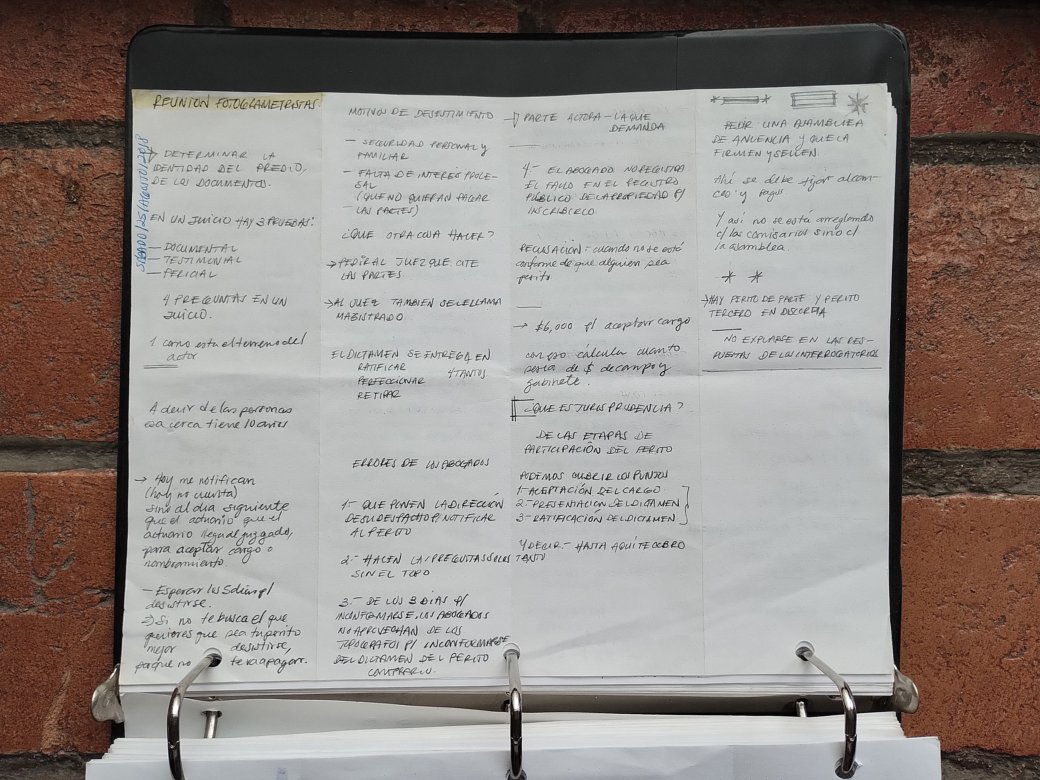 REUNION FOTOGRAMETRISTAS
SÁBADO/25/AGOSTO/2018
→ DETERMINAR LA
IDENTIDAD DEL PREDIO,
DE LOS DOCUMENTOS.
EN UN JUICIO HAY 3 PRUEBAS:
— DOCUMENTAL
— TESTIMONIAL
— PERICIAL
4 PREGUNTAS EN UN
JUICIO.
1 como esta el terreno del
actor
A decir de las personas
esa cerca tiene 10 años
→ Hoy me notifican
(hoy no cuenta)
sino al día siguiente
que el actuario que el
actuario llegue al juzgado,
para aceptar cargo o
nombramiento.
— Esperar los 5 días p/
desistirse.
→ Si no te busca el que
quieres que sea tu perito
mejor desistirse,
porque no te va a pagar.
MOTIVOS DE DESISTIMIENTO
— SEGURIDAD PERSONAL Y
FAMILIAR
— FALTA DE INTERES PROCE-
SAL
(QUE NO QUIERAN PAGAR
— LAS PARTES)
¿QUE OTRA COSA HACER?
→ PEDIR AL JUEZ QUE CITE
LAS PARTES.
→ AL JUEZ TAMBIEN SE LE LLAMA
MAGISTRADO.
EL DICTAMEN SE ENTREGA EN
RATIFICAR 4 TANTOS.
PERFECCIONAR
RETIRAR
ERRORES DE LOS ABOGADOS
1.- QUE PONEN LA DIRECCIÓN
DE SU DESPACHO P/ NOTIFICAR
AL PERITO
2.- HACEN LAS PREGUNTAS SOLOS
SIN EL TOPO
3.- DE LOS 3 DIAS P/
INCONFORMARSE, LOS ABOGADOS
NO APROVECHAN DE LOS
TOPOGRAFOS P/ INCONFORMARSE
DEL DICTAMEN DEL PERITO
CONTRARIO.
→ PARTE ACTORA — LA QUE
DEMANDA
4.- EL ABOGADO NO REGISTRA
EL FALLO EN EL REGISTRO
PÚBLICO DE LA PROPIEDAD P/
INSCRIBIRLO
RECUSACIÓN:- cuando no te está
conforme de que alguien sea
perito
→ $6,000 p/ aceptar cargo
con eso cálcula cuanto
sería de $ de campo y
gabinete.
¿QUE ES JURISPRUDENCIA?
DE LAS ETAPAS DE
PARTICIPACIÓN DEL PERITO
PODEMOS CUBRIR LOS PUNTOS
1.- ACEPTACIÓN DEL CARGO
2.- PRESENTACIÓN DEL DICTAMEN
3.- RATIFICACIÓN DEL DICTAMEN
Y DECIR:- HASTA AQUÍ TE COBRO
TANTO
PEDIR UNA ASAMBLEA
DE ANUENCIA Y QUE LA
FIRMEN Y SELLEN.
Ahí se debe fijar alcan-
ces y pagos
Y así no se está arreglando
c/ los comisarios sino c/
la asamblea.
→ HAY PERITO DE PARTE Y PERITO
TERCERO EN DISCORDIA
— NO EXPLAYARSE EN LAS RES-
PUESTAS DE LOS INTERROGATORIOS